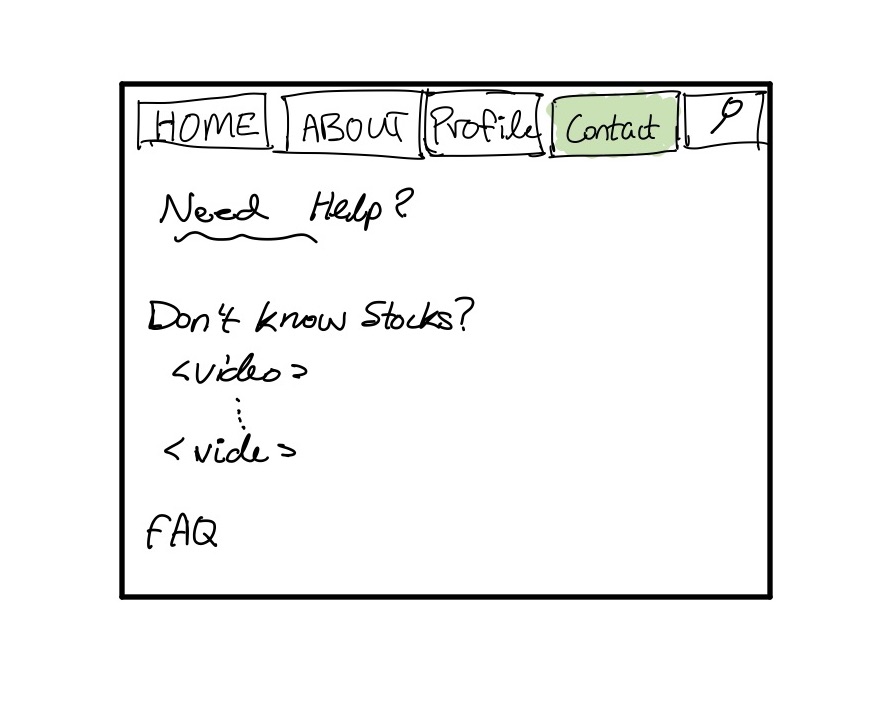 HOME ABOUT Profile Contact
Need Help?
Don't know Stocks?
<video>
<vide>
FAQ